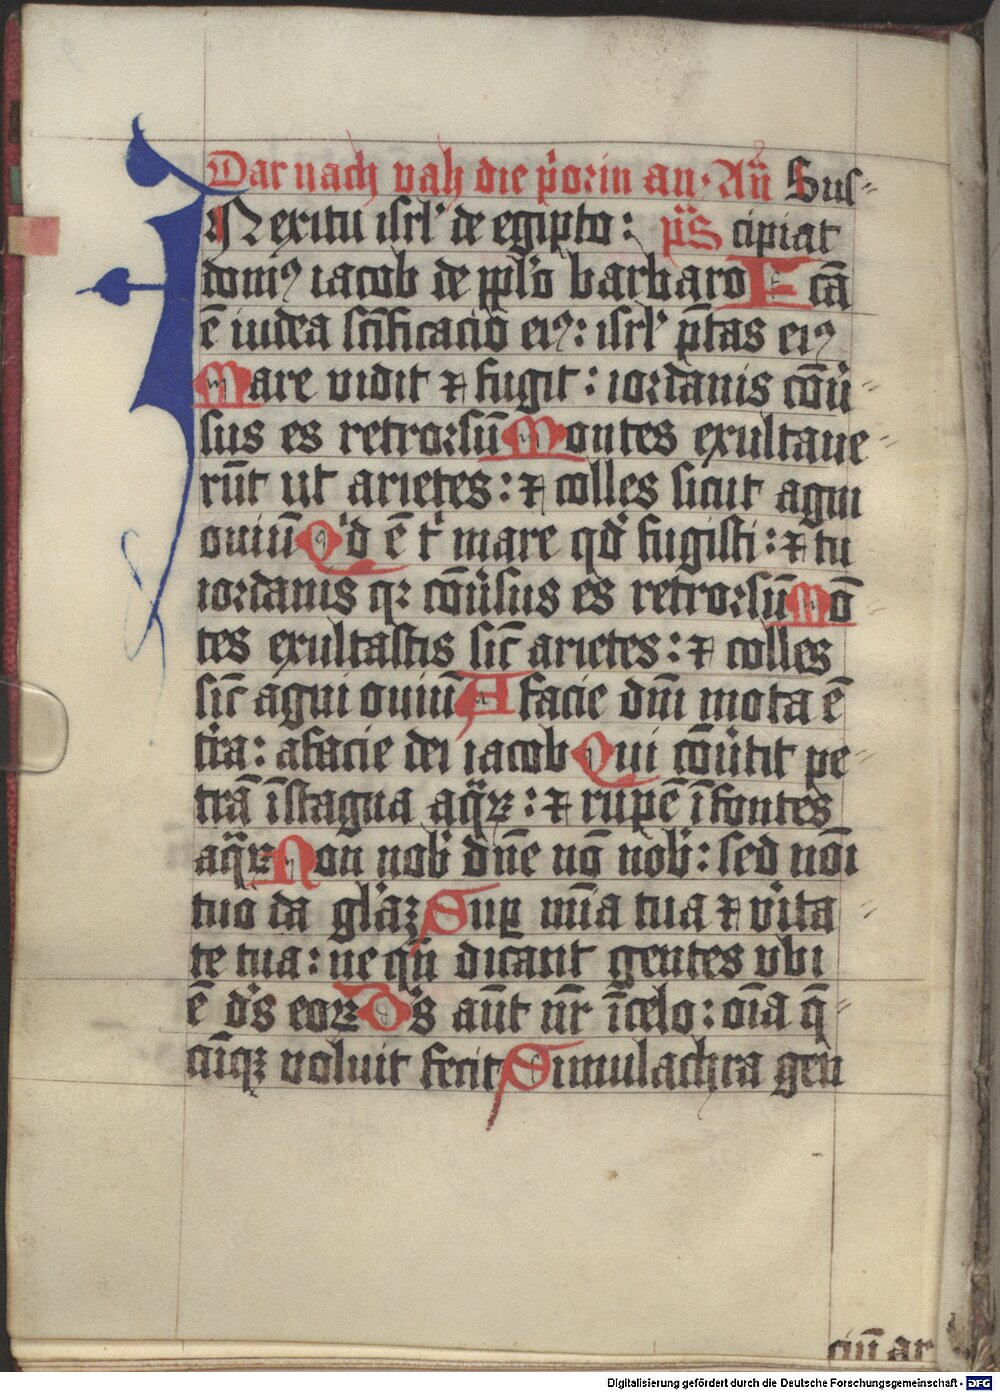 Dar nach vah die p̾orin an · An̄ Sus⸗
IN exitu isrl̾ de egipto : ps̄ cipiat
domꝯ iacob de ppl̾o barbaro Fcā
ē iudea scīficacio eiꝯ : isrl̾ p̄tas eiꝯ
Mare vidit ⁊ fugit : iordanis cōu̾⸗
sus es retrorsū Montes exultaue⸗
rūt ut arietes : ⁊ colles sicut agni
ouiū Q̾d ē t̾ mare qd̾ fugisti : ⁊ tu
iordanis qꝛ cōu̾sus es retrorsū Mō
tes exultastis sic̄ arietes : ⁊ colles
sic̄ agni ouiū A facie dn̄i mota ē
t̾ra : afacie dei iacob Qui cōu̾tit pe⸗
trā ī stagna aqꝝ : ⁊ rupē ī fontes
aqꝝ Non nob̾ dn̄e nō nob̾ : sed nōi
tuo da gl̾aꝫ Suꝑ mīa tua ⁊ v̾ita⸗
te tua : ne qn̄ dicant gentes vbi
ē d̾s eoꝝ D̾s aūt nr̄ ī celo : oīa q̄⸗
cūqꝫ voluit fecit Simulachra gen
ciū ar
Digitalisierung gefördert durch die Deutsche Forschungsgemeinschaft - DFG